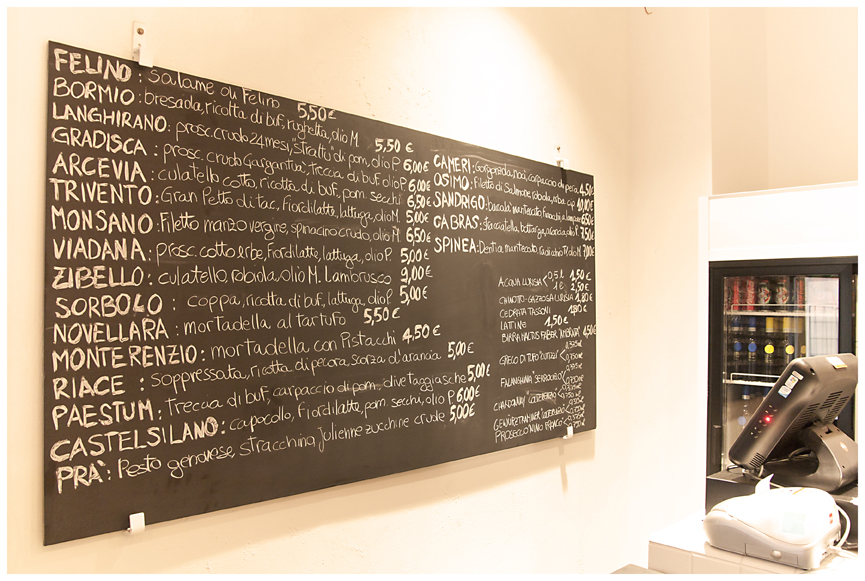 FELINO: Salame di Felino 5,50€
BORMIO: bresaola, ricotta di buf, rughetta, olio M. 5,50 €
LANGHIRANO: prosc. crudo 24 mesi, "strattu" di pom, olio P. 6,00€
GRADISCA: prosc. crudo Gargantua, treccia di buf. olio P. 6,00€
ARCEVIA: culatello cotto, ricotta di buf, pom. secchi 6,50€
TRIVENTO: Gran Petto di tac, Fiordilatte, lattuga, olio M. 5,00€
MONSANO: Filetto manzo vergine, spinacino crudo, olio M. 6,50€
VIADANA: prosc. cotto erbe, Fiordilatte, lattuga, olio P. 5,00€
ZIBELLO: culatello, robiola, olio M. Lambrusco 9,00€
SORBOLO: coppa, ricotta di buf, lattuga, olio P 5,00€
NOVELLARA: mortadella al tartufo 5,50€
MONTERENZIO: mortadella con Pistacchi 4,50€
RIACE: Soppressata, ricotta di pecora, scorza d'arancia 5,00€
PAESTUM: Treccia di buf, carpaccio di pom, olive taggiasche 5,00€
CASTELSILANO: capocollo, fiordilatte, pom. secchi, olio P. 6,00€
PRA': Pesto genovese, stracchino, julienne zucchine crude 5,00€
CAMERI: Gorgonzola, noci, carpaccio di pera 4,50€
OSIMO: Filetto di Salmone, robiola, erba cip. 10,00€
SANDRIGO: bacalà mantecato, 6,50€
CABRAS: Stracciatella, bottarga, arancia, olio P. 7,50€
SPINEA: mantecato, radicchio TV, olio M. 7,00€
ACQUA LURISIA 0,5 l 1,50€
1 l 2,50€
CHINOTTO-GAZZOSA LURISIA 1,80€
CEDRATA TASSONI 1,80€
LATTINE 1,50€
BIRRA 4,50€
GRECO DI TUFO
FALANGHINA
CHARDONNAY
GEWÜRZTRAMINER
PROSECCO NINO FRANCO